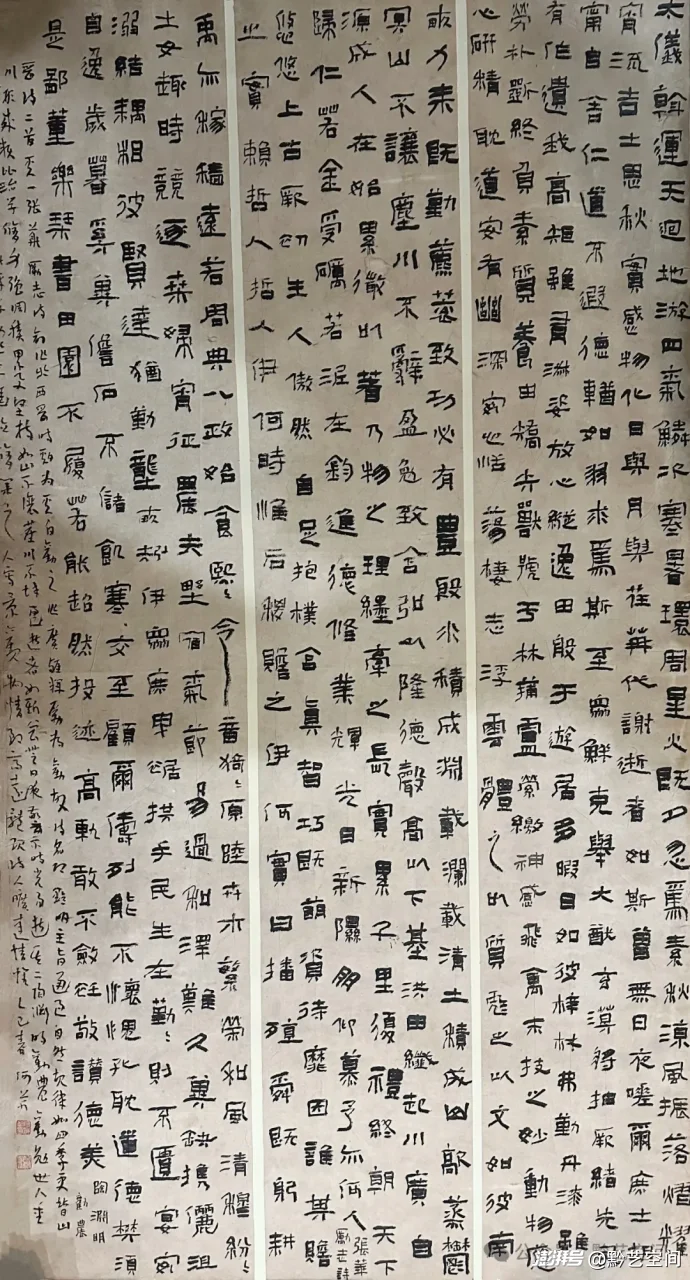 太儀斡運天迴地游四氣鱗次寒暑環周星火既夕忽焉素秋涼風振落熠耀
宵流吉士思秋實感物化日與月與荏苒代謝逝者如斯曾無日夜嗟爾庶士
甯自舍仁道不遐德輶如羽求焉斯至眾鮮克舉大猷玄漠將抽厥緒先
有作遺我高矩雖有淑姿放心縱逸田般于遊居多暇日如彼梓材弗勤丹漆雖
勞朴斲終負素質養由矯矢獸號于林蒲盧縈繳神感飛禽末技之妙動物應
心研精耽道安有幽深安心恬蕩棲志浮雲體之以質彪之以文如彼南
畝力耒既勤藨蓘致功必有豐殷水積成淵載瀾載清土積成山歊蒸鬱
冥山不讓塵川不辭盈勉致含弘以隆德聲高以下基洪由纖起川廣自
源成人在始累微以著乃物之理纆牽之長實累千里復禮終朝天下
歸仁若金受礪若泥在鈞進德修業輝光日新隰朋仰慕予亦何人
張華
勵志詩
悠悠上古厥初生人傲然自足抱樸含真智巧既萌資待靡因誰其贍
之實賴哲人哲人伊何時惟后稷贍之伊何實曰播殖舜既躬耕
禹亦稼穡遠若周典八政始食熙〻令音猗〻原陸卉木繁榮和風清穆紛〻
士女趣時競逐桑婦宵征農夫野宿氣節易過和澤難久冀缺攜儷沮
溺結耦相彼賢達猶勤壟畝矧伊眾庶曳裾拱手民生在勤〻則不匱宴安
自逸歲暮奚冀儋石不儲飢寒交至顧爾儔列能不懷愧孔耽道德樊須
是鄙董樂琴書田園不履若能超然投迹高軌敢不斂衽敬讚德美
陶淵明
勸農
澎湃号@黔艺空间